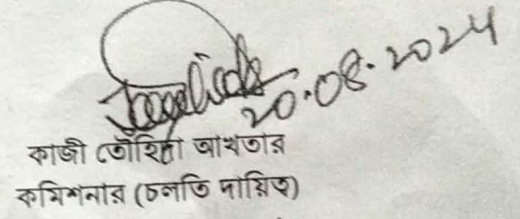 20.08.2024
কাজী তৌহিদা আখতার
কমিশনার (চলতি দায়িত্ব)